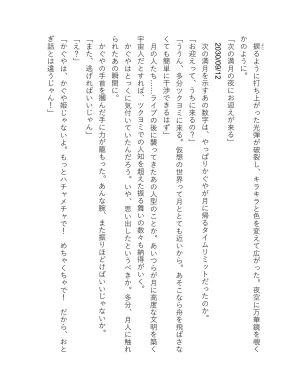 鏤るように打ち上がった光弾が破裂し、キラキラと色を変えて広がった。夜空に万華鏡を覗く
かのように。
「次の満月の夜にお迎えが来る」
2030/09/12
次の満月を示すあの数字は、やっぱりかぐやが月に帰るタイムリミットだったのか。
「お迎えって、うちに来るの？」
「ううん、多分ツクヨミに来る。仮想の世界って月ととても近いから。あそこなら舟を飛ばさな
くても簡単に干渉できるはず」
月の人たち――ライブの後に襲ってきたあの人型のことか。あいつらが月に高度な文明を築く
宇宙人だとすれば、ツクヨミでの人知を超えた振る舞いの数々も納得がいく。
かぐやはとっくに気付いていたんだろう。いや、思い出したというべきか。多分、月人に触れ
られたあの瞬間に。
かぐやの手首を掴んだ手に力が籠もった。あんな腕、また振りほどけばいいじゃないか。
「また、逃げればいいじゃん」
「え？」
「かぐやは、かぐや姫じゃないよ。もっとハチャメチャで！　めちゃくちゃで！　だから、おと
ぎ話とは違うじゃん！」